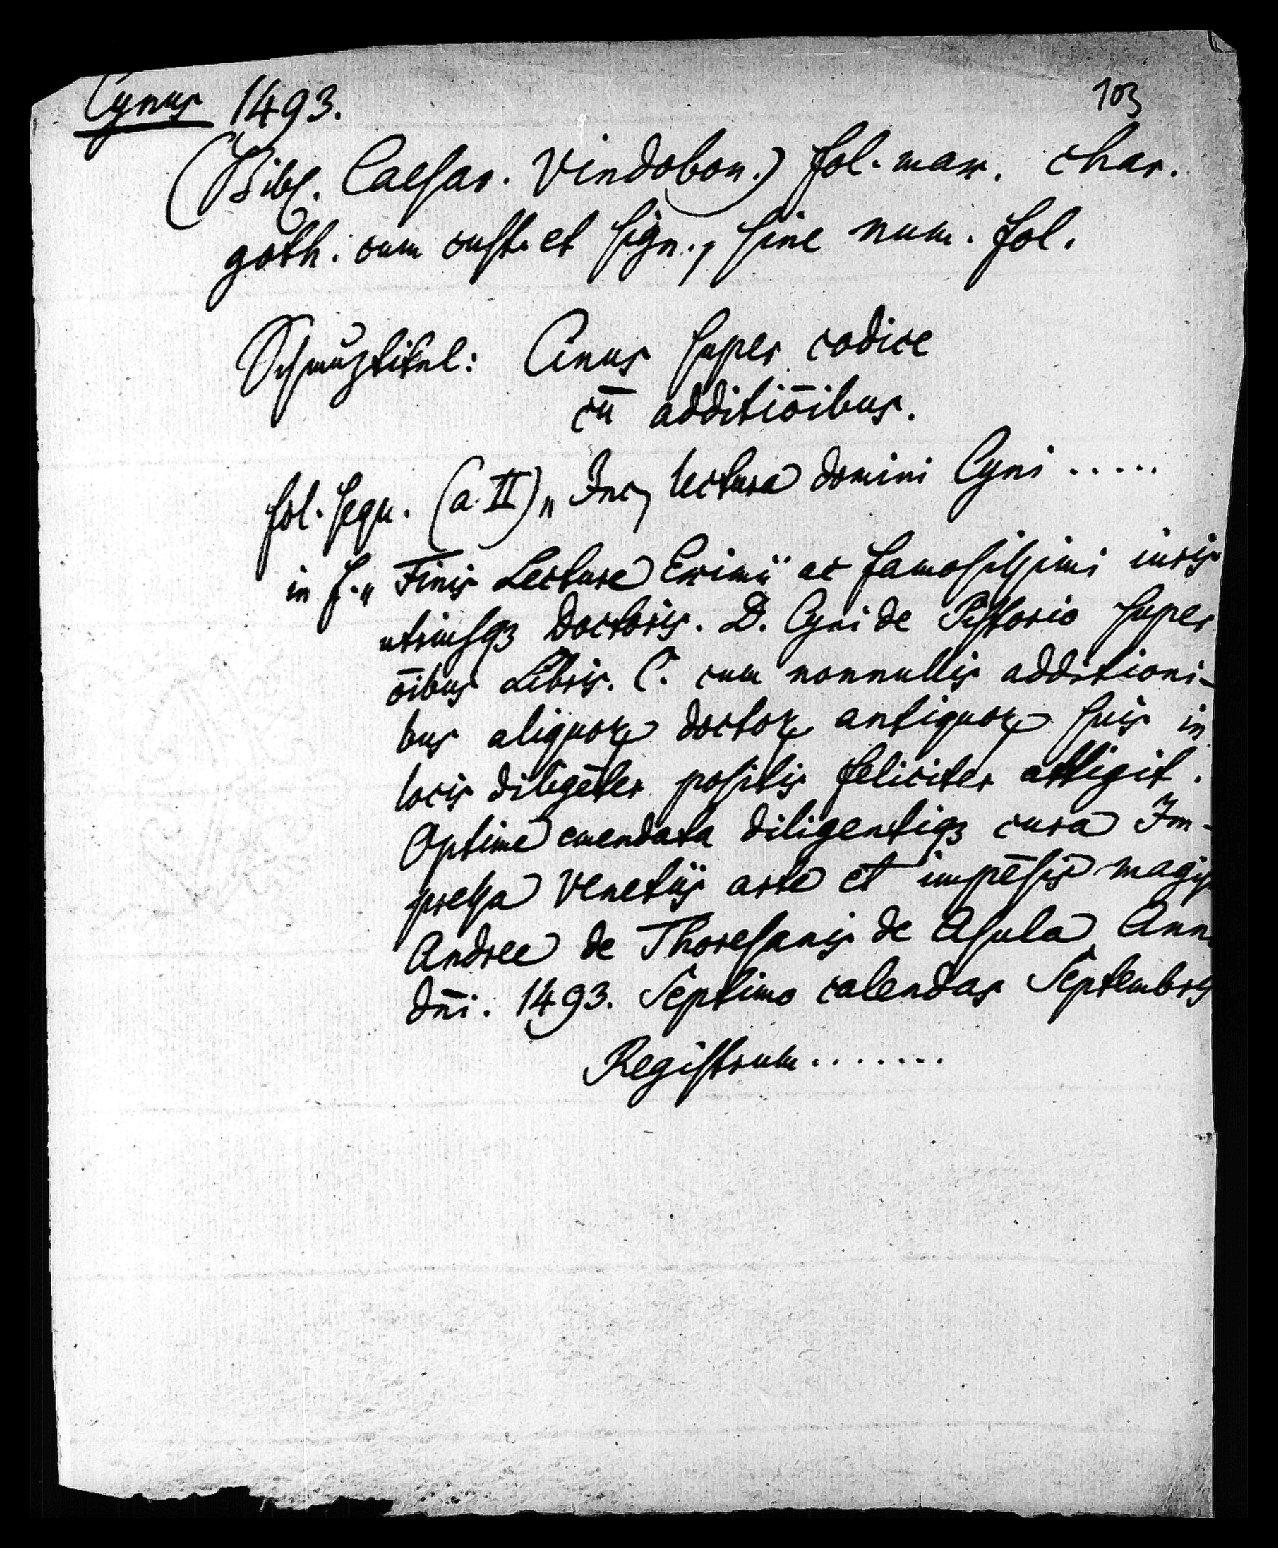 103
Cynus 1493.
(Bibl. Caesar. Vindobon.) fol. max. char.
goth. cum cust. et sign., sine num. fol.
Schmuztitel: Cinus super codice
cū additiōibus.
fol. sequ. (a II) „ Inc, lectura domini Cyni .....
in f. „ Finis Lecture Eximii ac famosissimi iuris
utriusqꝫ Doctoris. D. Cyni de Pistorio super
ōibus Libris. C. cum nonnullis additioni-
bus aliquoꝝ doctoꝝ antiquoꝝ suis in
locis diligēter positis feliciter attigit.
Optime emendata diligentiqꝫ cura Im-
pressa Venetiis arte et impēsis magis
Andree de Thoresanis de Asula Ann
dn̄i. 1493. Septimo calendas Septembris
Registrum .......